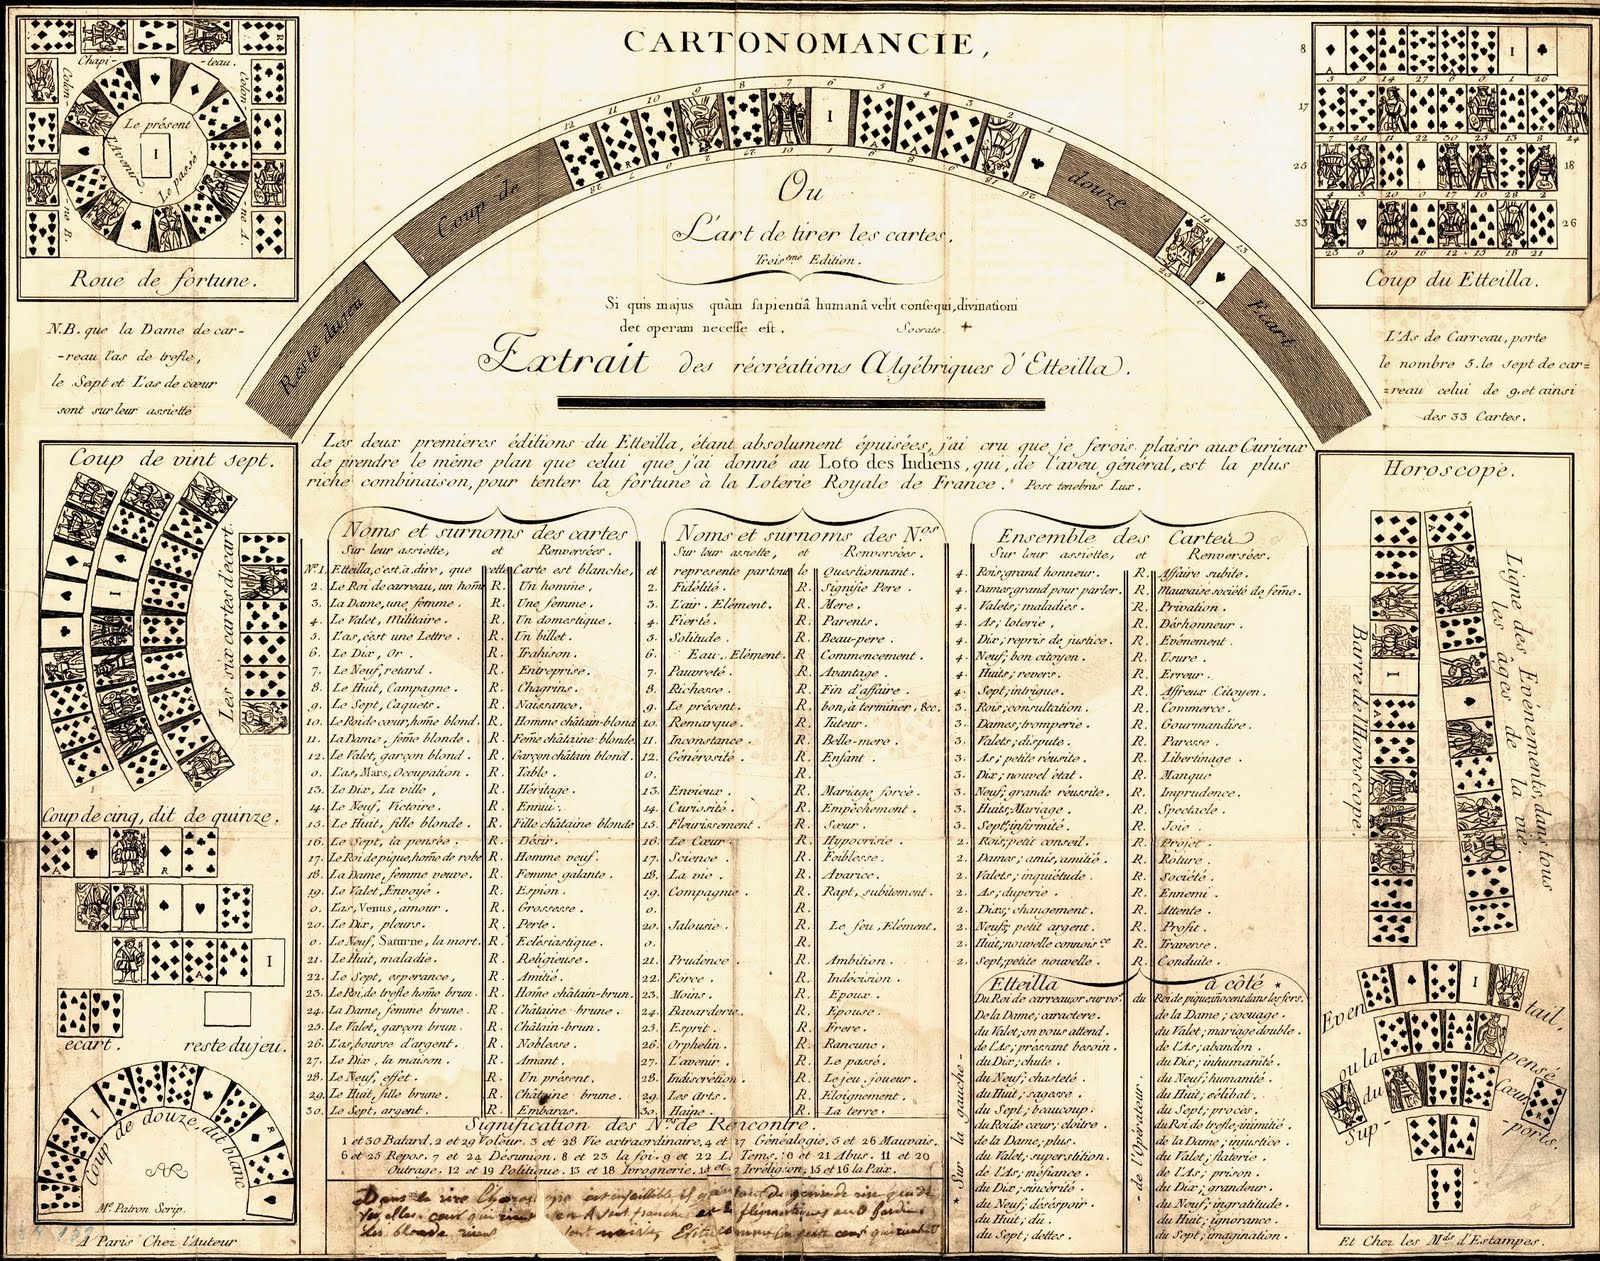 CARTONOMANCIE,
Ou
L'art de tirer les cartes.
Trois.eme Edition.
Si quis majus quàm sapientiâ humanâ velit consequi, divinationi
det operam necesse est. Socrate. +
Extrait des récréations Algébriques d'Etteilla.
Reste du jeu
Coup de
douze
Ecart
Chapi-
-teau.
Colon-
-ne B.
Colon-
-ne A.
Le présent
Le passé
L'Avenir
1
Roue de fortune.
N.B. que la Dame de car-
-reau l'as de trefle,
le Sept et L'as de cœur
sont sur leur assiette
Coup du Etteilla.
L'As de Carreau, porte
le nombre 5. le sept de car=
=reau celui de 9, et ainsi
des 33 Cartes.
Les deux premieres éditions du Etteilla, étant absolument épuisées, j'ai cru que je ferois plaisir aux Curieux
de prendre le même plan que celui que j'ai donné au Loto des Indiens, qui, de l'aveu général, est la plus
riche combinaison, pour tenter la fortune à la Loterie Royale de France. Post tenebras Lux.
Coup de vint sept.
Les six cartes d'ecart.
Coup de cinq, dit de quinze.
ecart.
reste du jeu.
Coup de douze, dit blanc
M.e Patron Scrip.
A Paris Chez l'Auteur
Noms et surnoms des cartes
Sur leur assiette, et Renversées.
N.o 1. Etteilla, c'est à dire, que cette Carte est blanche, et
2. Le Roi de carreau, un home R. Un homme,
3. La Dame, une femme. R. Une femme.
4. Le Valet, Militaire. R. Un domestique.
5. L'as, c'est une Lettre. R. Un billet.
6. Le Dix, Or. R. Trahison.
7. Le Neuf, retard. R. Entreprise.
8. Le Huit, Campagne. R. Chagrins.
9. Le Sept, Caquets. R. Naissance.
10. Le Roi de cœur, home blond. R. Homme châtain-blond
11. La Dame, feme blonde. R. Feme châtaine blonde.
12. Le Valet, garçon blond. R. Garçon châtain blond.
0. L'as, Mars, Occupation. R. Table.
13. Le Dix, La ville, R. Héritage.
14. Le Neuf, Victoire. R. Ennui.
15. Le Huit, fille blonde. R. Fille châtaine blonde
16. Le Sept, la pensée. R. Désir.
17. Le Roi de pique, home de robe R. Homme veuf.
18. La Dame, femme veuve. R. Femme galante.
19. Le Valet, Envoyé. R. Espion.
0. L'as, Venus, amour. R. Grossesse.
20. Le Dix, pleurs. R. Perte.
0. Le Neuf, Saturne, la mort. R. Eclésiastique.
21. Le Huit, maladie. R. Religieuse.
22. Le Sept, esperance, R. Amitié.
23. Le Roi, de trefle home brun. R. Home châtain-brun.
24. La Dame, femme brune. R. Châtaine-brune.
25. Le Valet, garçon brun. R. Châtain-brun.
26. L'as, bourse d'argent. R. Noblesse.
27. Le Dix, la maison. R. Amant.
28. Le Neuf, effet. R. Un présent.
29. Le Huit, fille brune. R. Châtaine brune.
30. Le Sept, argent. R. Embaras.
Noms et surnoms des N.os
Sur leur assiette, et Renversées.
represente partout le Questionnant.
2. Fidélité. R. Signifie Pere.
3. L'air, Elément. R. Mere.
4. Fierté. R. Parents.
5. Solitude. R. Beau-pere.
6. Eau, Elément. R. Commencement.
7. Pauvreté. R. Avantage.
8. Richesse. R. Fin d'affaire.
9. Le présent. R. bon, à terminer, &c.
10. Remarque. R. Tuteur.
11. Inconstance. R. Belle-mere.
12. Générosité. R. Enfant.
0. R.
13. Envieux. R. Mariage forcé.
14. Curiosité. R. Empêchement.
15. Fleurissement. R. Sœur.
16. Le Cœur. R. Hypocrisie.
17. Science. R. Foiblesse.
18. La vie. R. Avarice.
19. Compagnie. R. Rapt, subitement.
0. R.
20. Jalousie. R. Le feu, Elément.
0. R.
21. Prudence R. Ambition.
22. Force. R. Indécision.
23. Moins. R. Epoux.
24. Bavarderie. R. Epouse.
25. Esprit. R. Frere.
26. Orphelin. R. Rancune.
27. L'avenir. R. Le passé.
28. Indiscrétion. R. Le jeu, joueur.
29. Les Arts. R. Eloignement.
30. Haine. R. La terre.
Signification des N.os de Rencontre.
1 et 30 Batard. 2 et 29 Voleur. 3 et 28 Vie extraordinaire, 4 et 27 Généalogie, 5 et 26 Mauvais.
6 et 25 Repos. 7 et 24 Désunion. 8 et 23 la foi. 9 et 22 Le Tems. 10 et 21 Abus. 11 et 20
Outrage. 12 et 19 Politique. 13 et 18 Ivrognerie, 14 et 17 Irréligion, 15 et 16 la Paix.
Ensemble des Cartes
Sur leur assiette, et Renversées.
4. Rois, grand honneur. R. Affaire subite.
4. Dames, grand pour parler. R. Mauvaise société de feme.
4. Valets; maladies. R. Privation.
4. As; loterie, R. Déshonneur.
4. Dix; repris de justice. R. Evénement.
4. Neuf; bon citoyen. R. Usure.
4. Huits; revers. R. Erreur.
4. Sept, intrigue. R. Affreux Citoyen.
3. Rois, consultation. R. Commerce.
3. Dames; tromperie. R. Gourmandise.
3. Valets; dispute. R. Paresse.
3. As; petite réusite. R. Libertinage.
3. Dix; nouvel état. R. Manque
3. Neuf; grande réussite. R. Imprudence.
3. Huits; Mariage. R. Spectacle.
3. Sept; infirmité. R. Joie.
2. Rois; petit conseil. R. Projet.
2. Dames; amis, amitié. R. Roture.
2. Valets; inquiétude. R. Société.
2. As; duperie. R. Ennemi.
2. Dix; changement. R. Attente.
2. Neufs; petit argent. R. Profit.
2. Huit; nouvelle connois.ce R. Traverse.
2. Sept; petite nouvelle. R. Conduite.
Etteilla à côté *
Du Roi de carreau; or sur vo. du Roi de pique; inocent dans les fers.
De la Dame; caractere. de la Dame; cocuage.
du Valet; on vous attend. du Valet; mariage double.
de l'As; pressant besoin. de l'As; abandon.
du Dix; chute. du Dix; inhumanité.
du Neuf; chasteté. du Neuf; humanité.
du Huit; sagesse. du Huit; célibat.
du Sept; beaucoup. du Sept; procès.
du Roi de cœur; cloitre. du Roi de trefle; inimitié.
de la Dame, plus. de la Dame; injustice.
du Valet; superstition. du Valet; flaterie.
de l'As; méfiance. de l'As; prison.
du Dix; sincérité. du Dix; grandeur.
du Neuf; déséspoir. du Neuf; ingratitude.
du Huit; du. du Huit; ignorance.
du Sept; dettes. du Sept; imagination.
* Sur la gauche -
- de l'Opérateur.
Horoscope.
Barre de l'Horoscope.
Ligne des Evénements dans tous
les âges de la vie.
Eventail,
ou la pensé
du Cœur
Sup-
-ports.
Et Chez les M.ds d'Estampes.